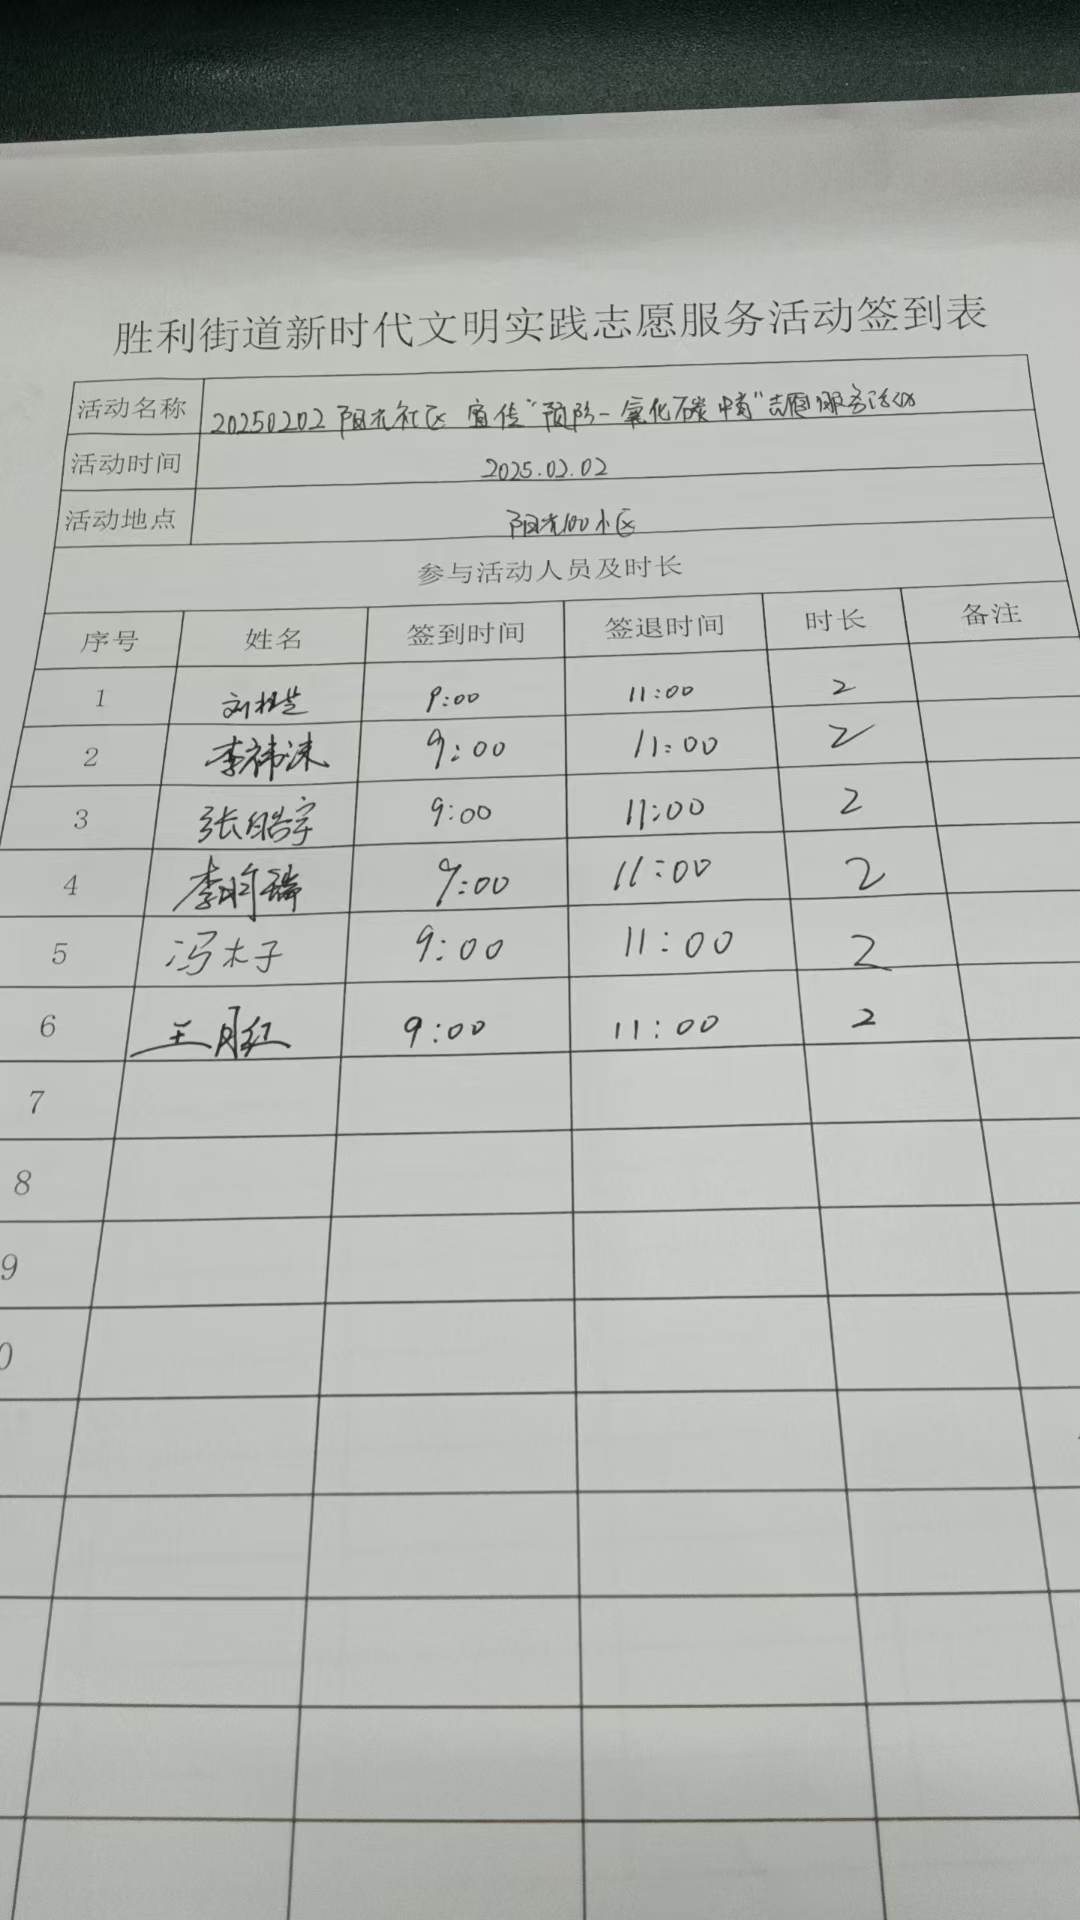 胜利街道新时代文明实践志愿服务活动签到表
活动名称 20250202 阳光社区 宣传"预防一氧化碳中毒"志愿服务活动
活动时间 2025.02.02
活动地点 阳光100小区
参与活动人员及时长
序号 姓名 签到时间 签退时间 时长 备注
1 刘桂芝 9:00 11:00 2
2 李祎沫 9:00 11:00 2
3 张皓宇 9:00 11:00 2
4 李昕瑞 9:00 11:00 2
5 冯木子 9:00 11:00 2
6 王月红 9:00 11:00 2
7
8
9
0